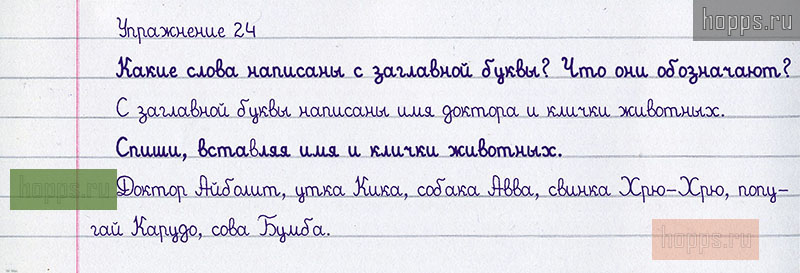 hopps.ru
Упражнение 24
Какие слова написаны с заглавной буквы? Что они обозначают?
С заглавной буквы написаны имя доктора и клички животных.
Спиши, вставляя имя и клички животных.
hopps.ru
Доктор Айболит, утка Кика, собака Авва, свинка Хрю-Хрю, попу-
гай Карудо, сова Бумба.
hopps.ru